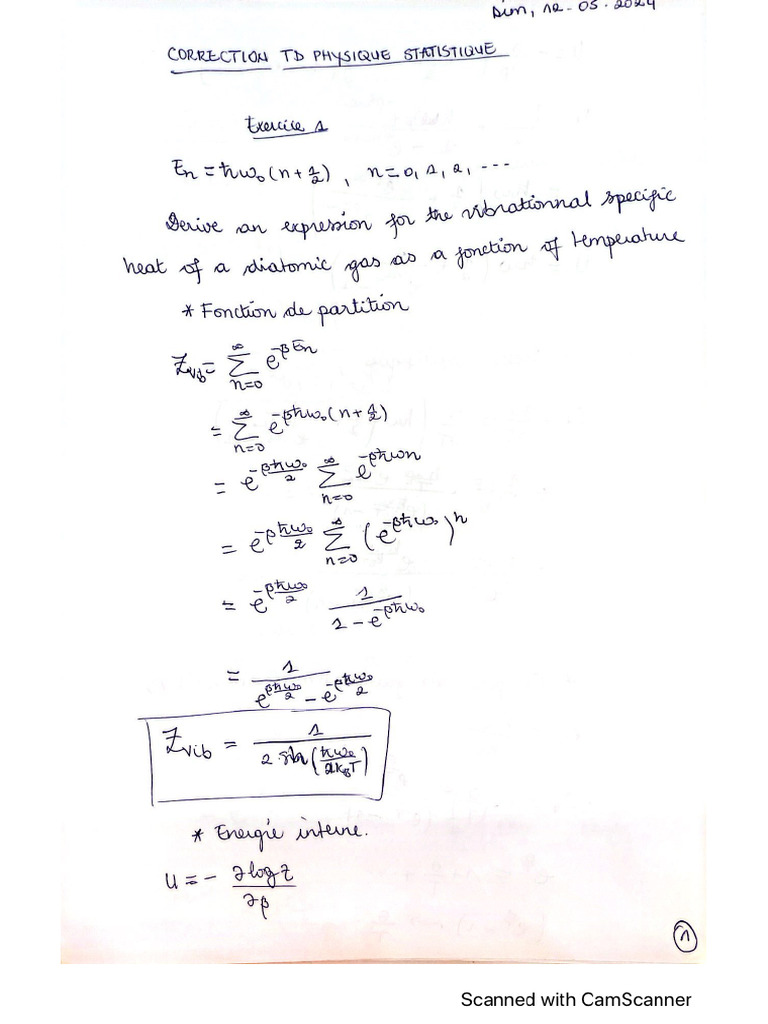 Dim, 12-05-2024
CORRECTION TD PHYSIQUE STATISTIQUE
Exercice 1
En = ħω₀(n + 1/2), n = 0, 1, 2, ...
Derive an expression for the vibrationnal specific
heat of a diatomic gas as a fonction of temperature
* Fonction de partition
Z_vib = ∑_{n=0}^{∞} e^{-βEn}
= ∑_{n=0}^{∞} e^{-βħω₀(n + 1/2)}
= e^{-βħω₀/2} ∑_{n=0}^{∞} e^{-βħωn}
= e^{-βħω₀/2} ∑_{n=0}^{∞} (e^{-βħω₀})^n
= e^{-βħω₀/2} 1/(1 - e^{-βħω₀})
= 1/(e^{βħω₀/2} - e^{-βħω₀/2})
Z_vib = 1/(2 sh(ħω₀/2k_BT))
* Energie interne.
U = - ∂log Z/∂β
1
Scanned with CamScanner